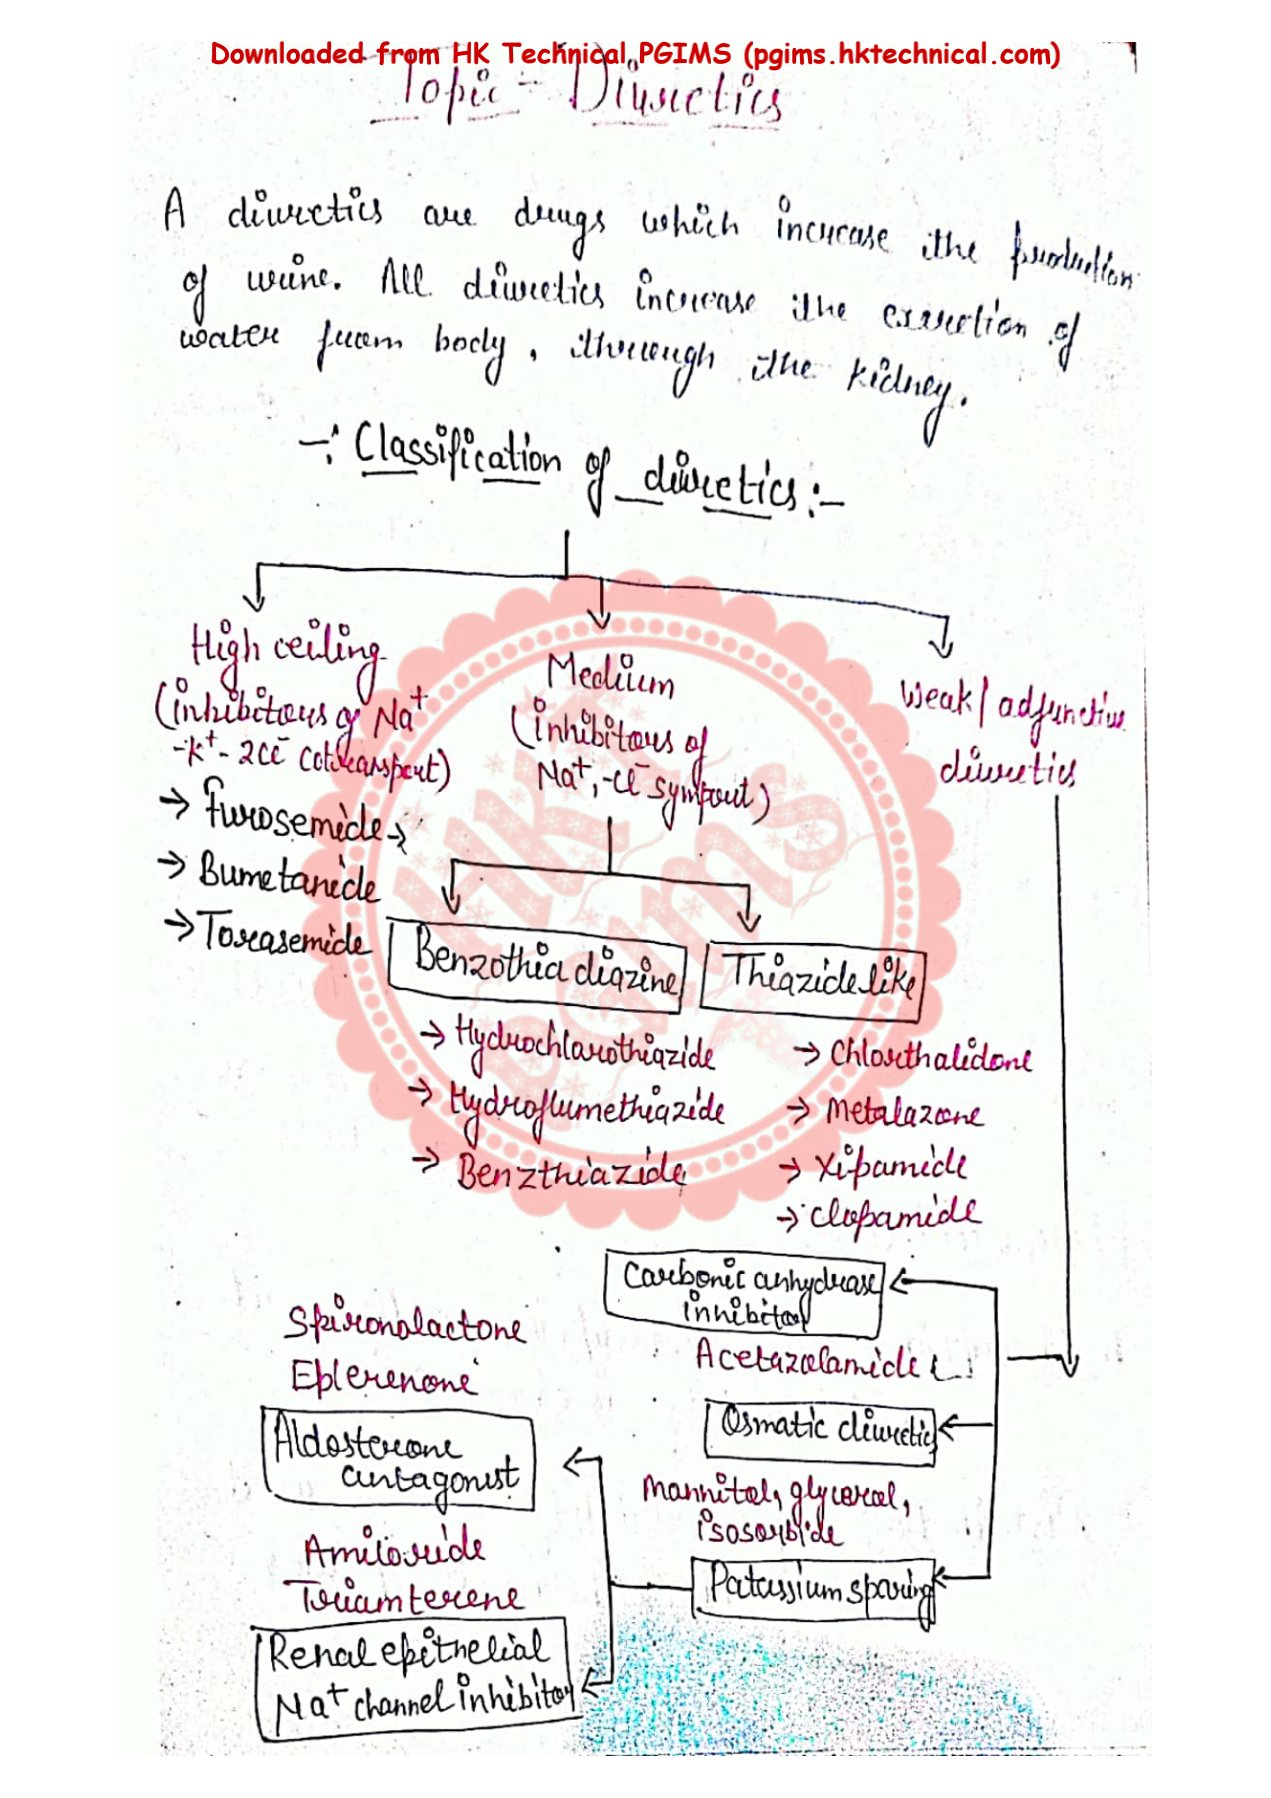 Downloaded from HK Technical PGIMS (pgims.hktechnical.com)
Topic - Diuretics
A diuretics are drugs which increase the production
of urine. All diuretics increase the excretion of
water from body, through the kidney.
-: Classification of diuretics :-
High ceiling
(inhibitors of Na⁺
-K⁺- 2Cl⁻ Cotransport)
→ furosemide
→ Bumetanide
→ Torasemide
Medium
(inhibitors of
Na⁺,-Cl⁻ symport)
Weak/adjunctive
diuretics
Benzothiadiazine
→ Hydrochlorothiazide
→ Hydroflumethiazide
→ Benzthiazide
Thiazide like
→ Chlorthalidone
→ Metalazone
→ Xipamide
→ Clopamide
Carbonic anhydrase
inhibitor
Acetazolamide
Osmatic diuretic
Mannitol, glycerol,
isosorbide
Patassium sparing
Spironolactone
Eplerenone
Aldosterone
antagonist
Amiloride
Triamterene
Renal epithelial
Na⁺ channel inhibitor
HKT
PGIMS